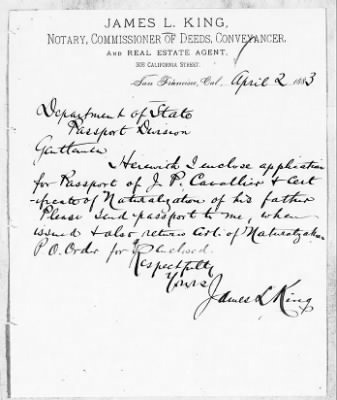 JAMES L. KING,
NOTARY, COMMISSIONER OF DEEDS, CONVEYANCER,
AND REAL ESTATE AGENT,
308 CALIFORNIA STREET.
San Francisco, Cal, April 2 1883
Department of State
Passport Division
Gentlemen
Herewith I enclose application
for Passport of J. P. Cavallier & Cert
-ficate of Naturalization of his father
Please send passport to me, when
issued & also return Cert. of Naturalization
P.O. Order for enclosed.
Respectfully
Yours
James L King